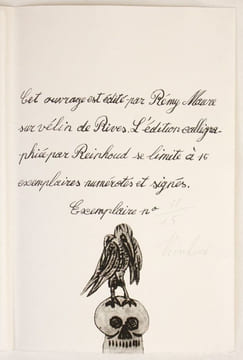 Cet ouvrage est édité par Rémy Maure
sur vélin de Rives. L'édition calligra-
phiée par Reinhoud se limite à 15
exemplaires numerotés et signés.
Exemplaire n°